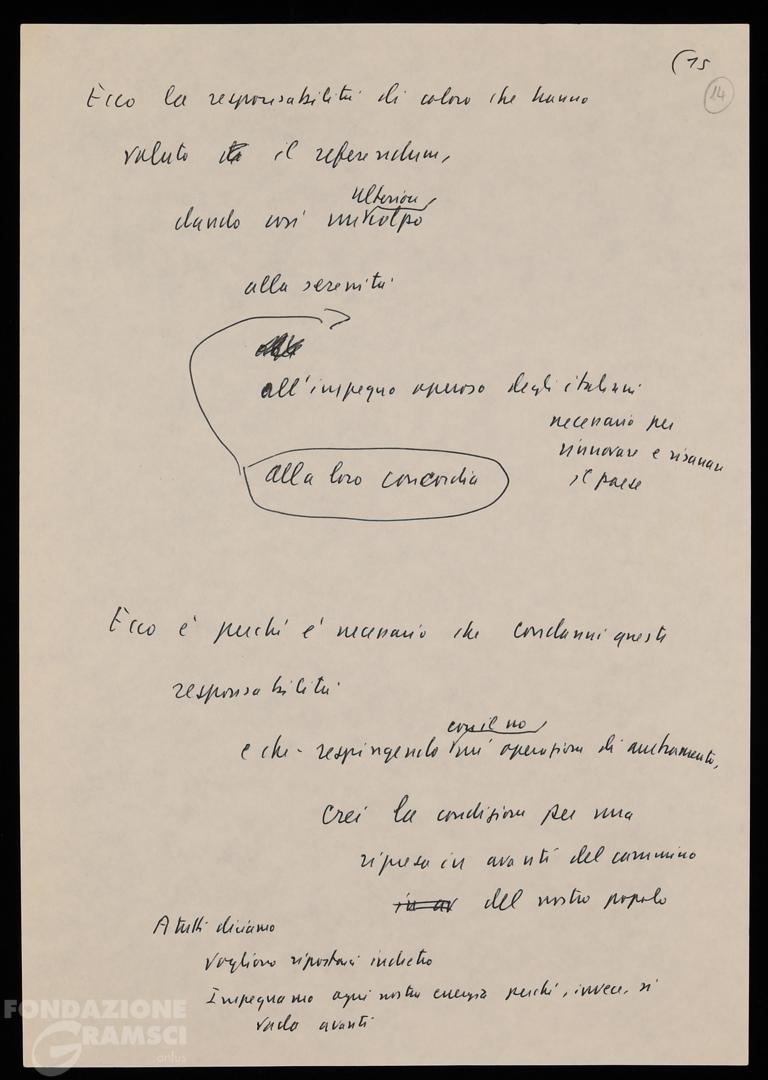 (15
14
Ecco la responsabilità di coloro che hanno
voluto il referendum,
ulteriore
dando così un colpo
alla serenità
all'impegno operoso degli italiani
necessario per
rinnovare e risanare
il paese
alla loro concordia
Ecco è perché è necessario che condanni queste
responsabilità
con il no
e che - respingendo un'operazione di arretramento,
crei la condizione per una
ripresa in avanti del cammino
in av del nostro popolo
A tutti diciamo
Vogliono riportarci indietro
Impegniamo ogni nostra energia perché, invece, si
vada avanti
FONDAZIONE
GRAMSCI
onlus